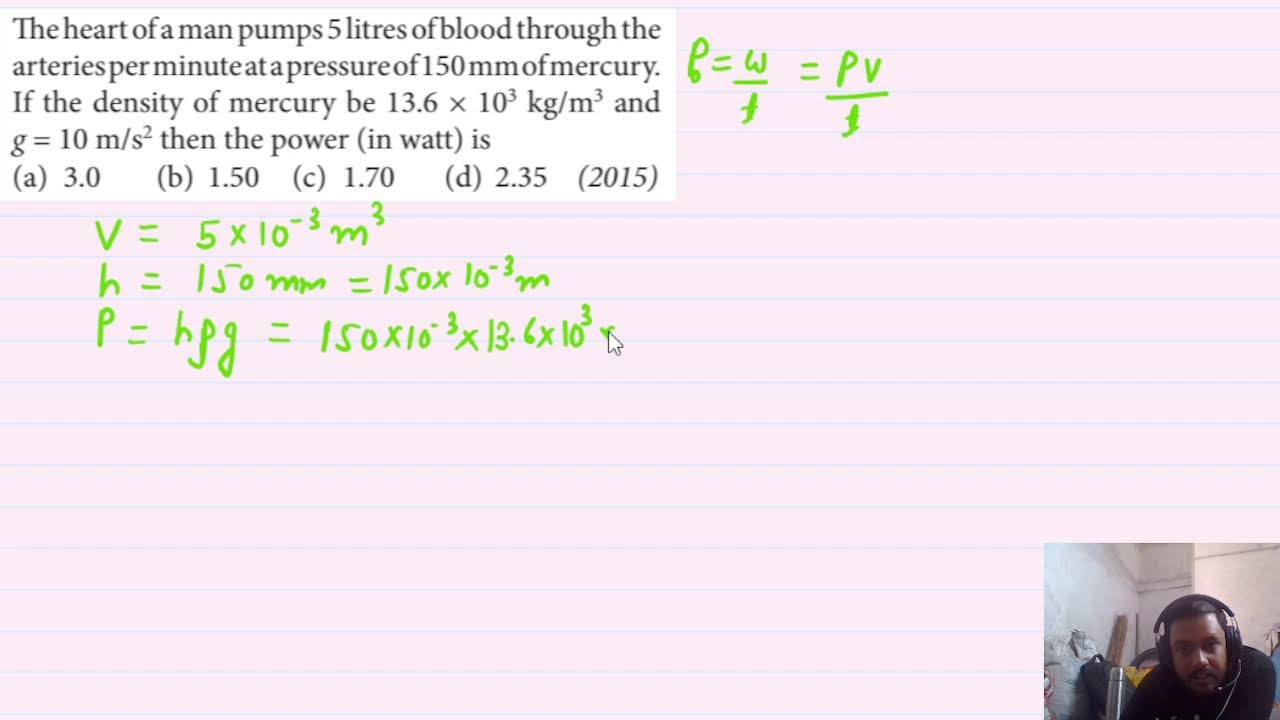 The heart of a man pumps 5 litres of blood through the
arteries per minute at a pressure of 150 mm of mercury.
If the density of mercury be 13.6 × 10³ kg/m³ and
g = 10 m/s² then the power (in watt) is
(a) 3.0 (b) 1.50 (c) 1.70 (d) 2.35 (2015)
P = w/t = PV/t
V = 5 × 10⁻³ m³
h = 150 mm = 150 × 10⁻³ m
P = hρg = 150 × 10⁻³ × 13.6 × 10³ ×